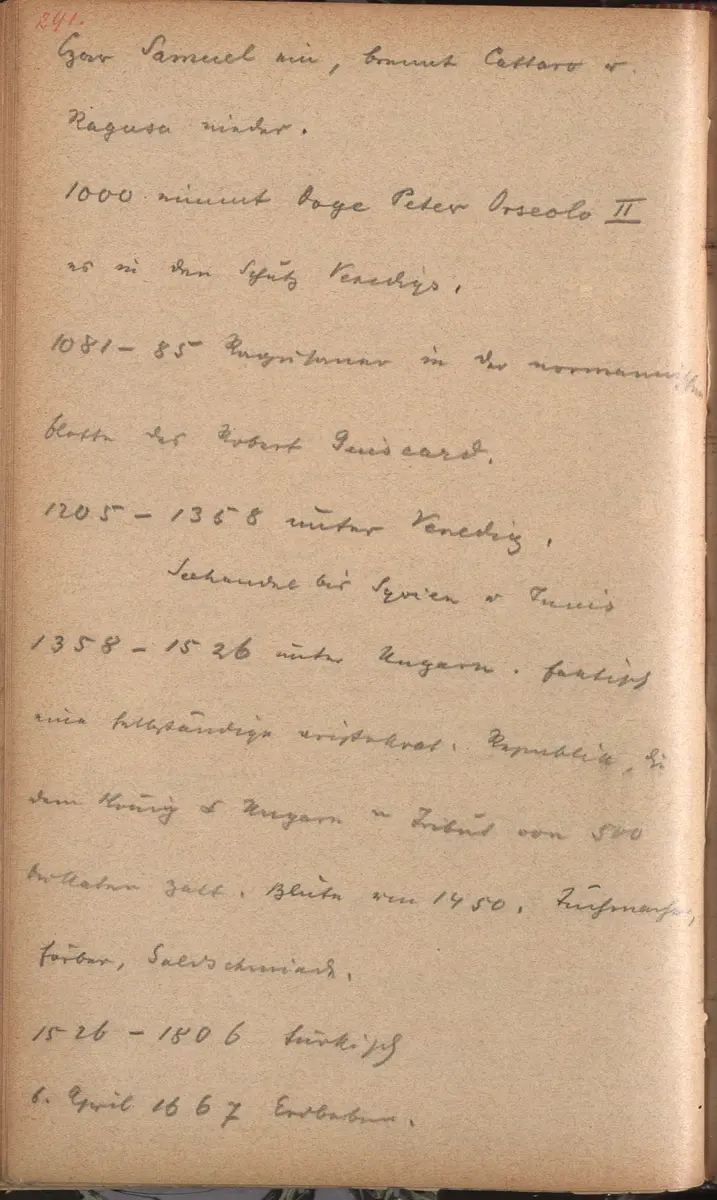 241.
Czar Samuel ein, brennt Cattaro u.
Ragusa nieder.
1000 nimmt Doge Peter Orseolo II
es in den Schutz Venedigs.
1081 – 85 Ragusaner in der normannischen
Flotte des Robert Guiscard.
1205 – 1358 unter Venedig.
Seehandel bis Syrien u Tunis
1358 – 1526 unter Ungarn. faktisch
eine selbständige aristokrat. Republik, die
dem König v Ungarn Tribut von 500
Dukaten zalt. Blüte um 1450. Tuchmacher,
Färber, Goldschmiede.
1526 – 1806 türkisch
6. April 1667 Erdbeben.